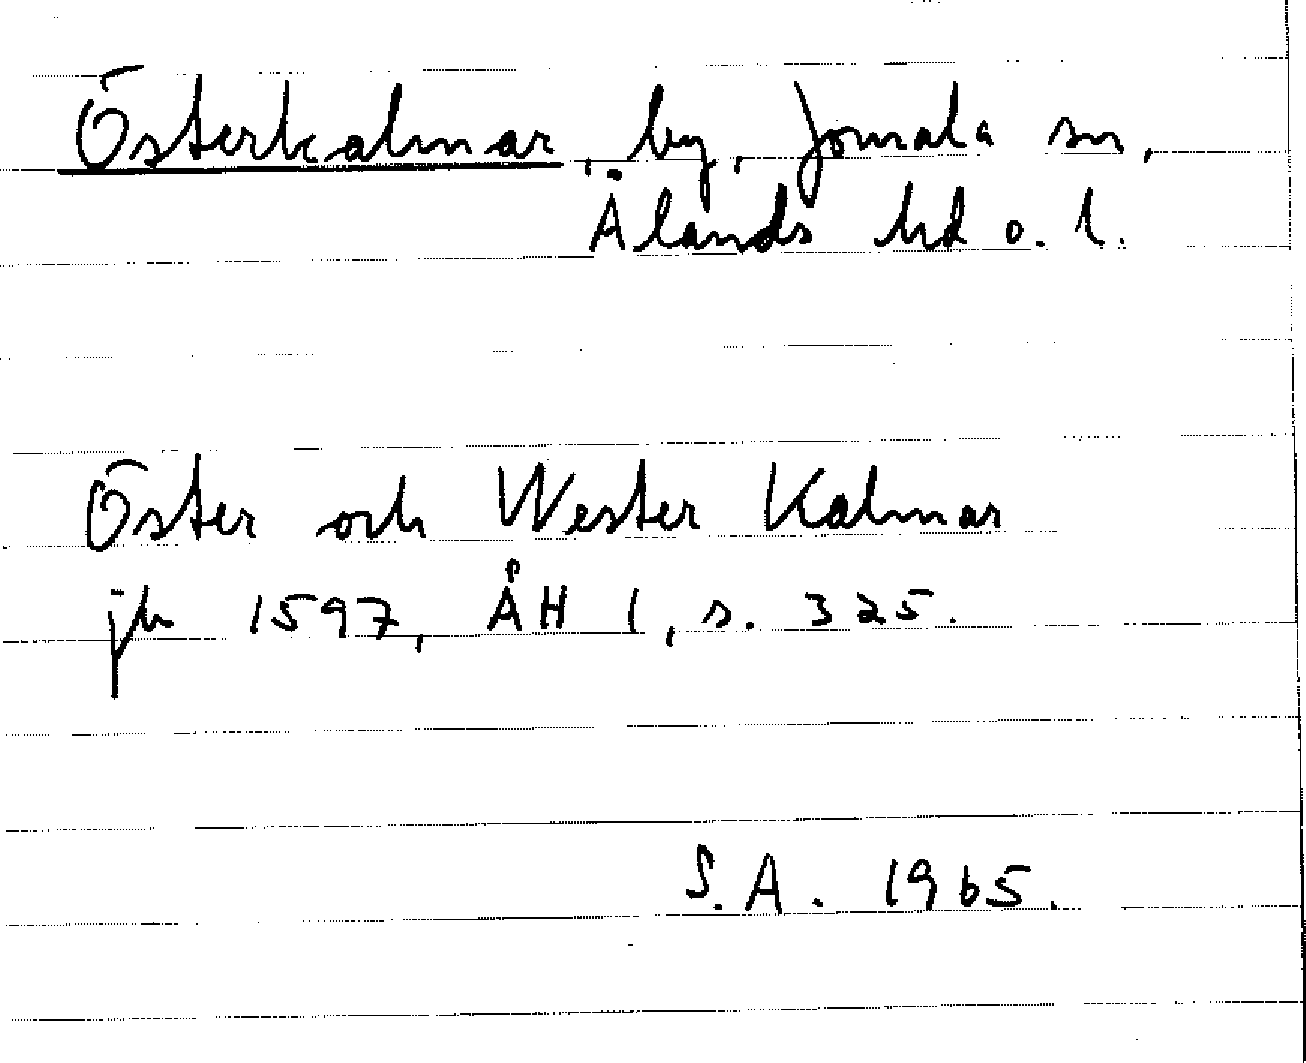 Österkalmar, by, Jomala sn,
Ålands hd o. l.
Öster och Wester Kalmar
jb 1597, ÅH 1, s. 325.
S.A. 1965.